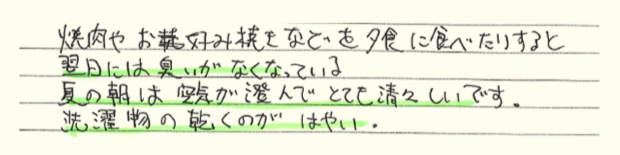 焼肉や お好み焼きなどを夕食に食べたりすると
翌日には臭いがなくなっている
夏の朝は空気が澄んでとても清々しいです。
洗濯物の乾くのが はやい。